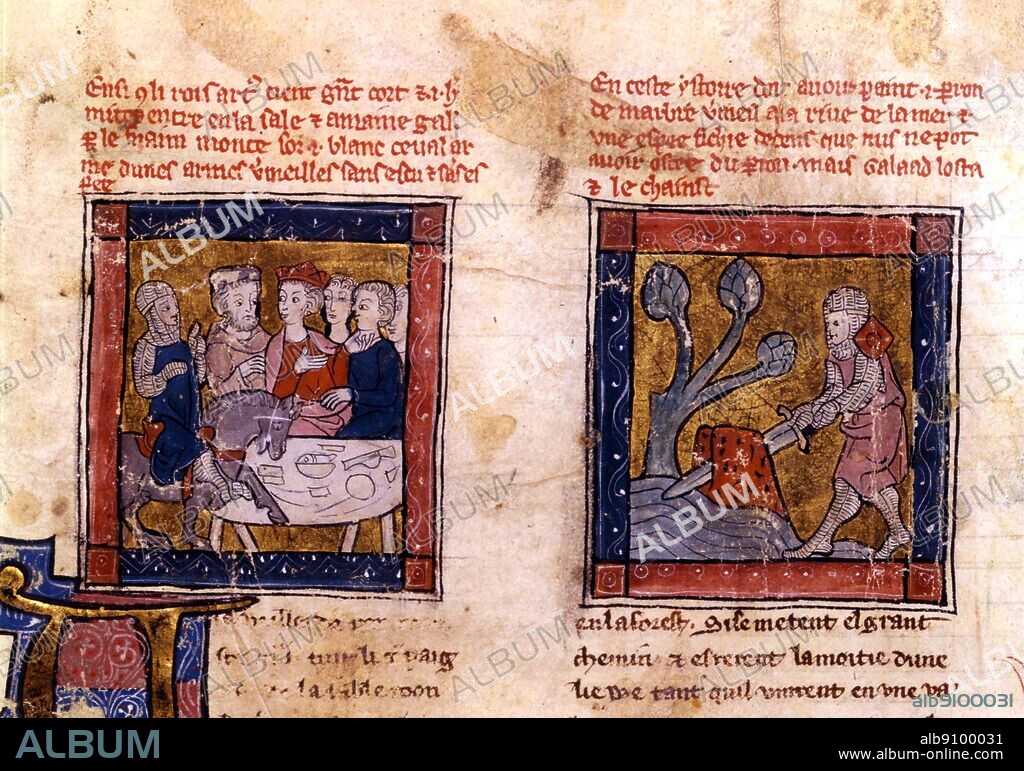 Ensi q̄ li rois art᷒ tient gñt cort & .i. h̾
mites entre en la sale & amaine gal
le main monte sor .i. blanc ceval ar
me dunes armes v̾meilles sans escu & sās es
pee
En ceste ystoire doit avoir paint .i. perron
de marbre v̾meil a la rive de la mer &
vne espee fichie dedens que nus ne pot
avoir ostee du p̱ron . mais Galaad losta
& le chainst
en la forest. Si se metent el grant
chemin & esrerent la moitie dune
liewe tant quil vinrent en vne va
ALBUM
alb9100031
ALBUM
alb9100031
www.album-online.com